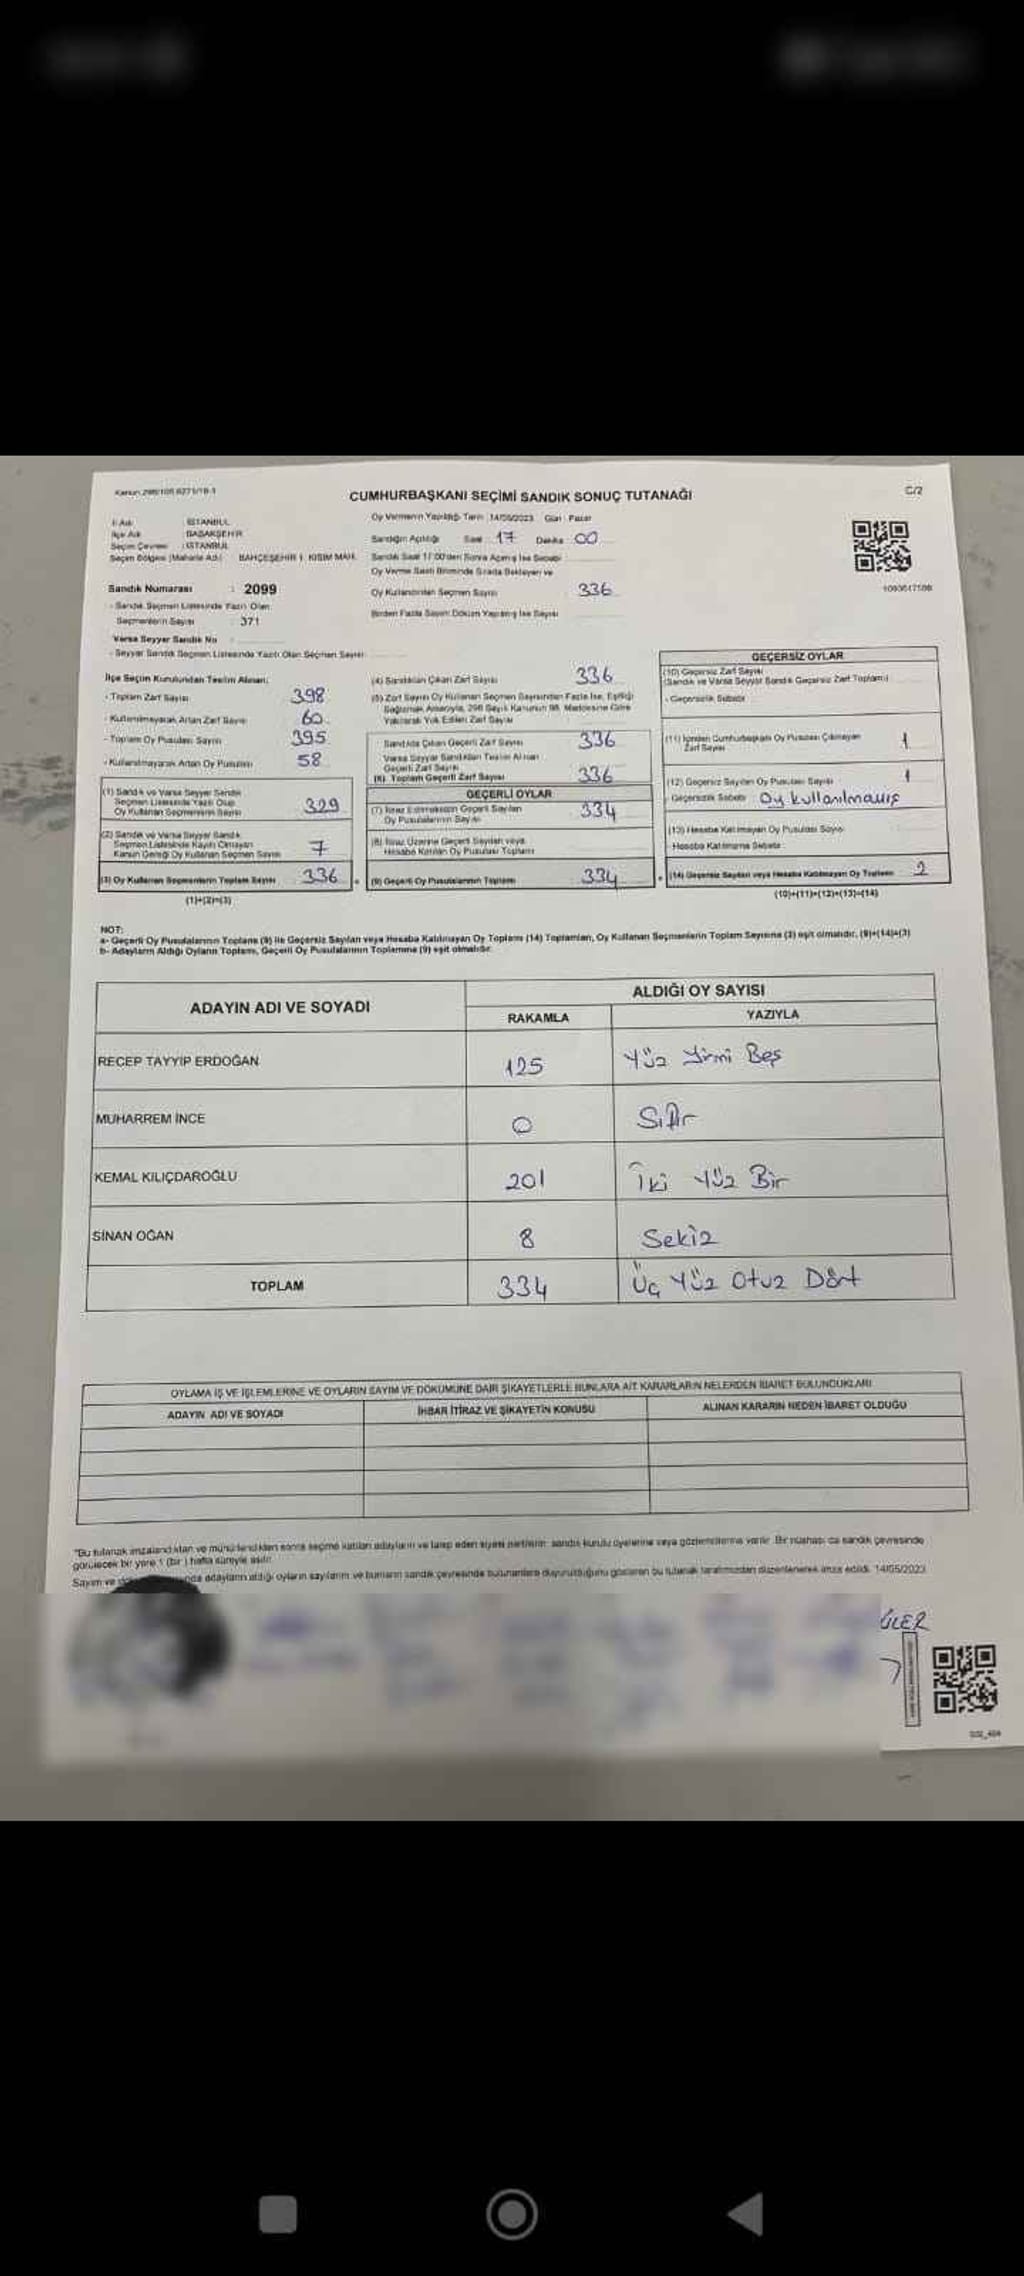 CUMHURBAŞKANI SEÇİMİ SANDIK SONUÇ TUTANAĞI
C/2
İl Adı : İSTANBUL
İlçe Adı : BAŞAKŞEHİR
Seçim Çevresi : İSTANBUL
Seçim Bölgesi (Mahalle Adı) : BAHÇEŞEHİR 1. KISIM MAH.
Sandık Numarası : 2099
- Sandık Seçmen Listesinde Yazılı Olan
Seçmenlerin Sayısı : 371
Varsa Seyyar Sandık No :
- Seyyar Sandık Seçmen Listesinde Yazılı Olan Seçmen Sayısı
Oy Vermenin Yapıldığı Tarih : 14/05/2023 Gün : Pazar
Sandığın Açıldığı Saat 17 Dakika 00
Sandık Saat 17:00'den Sonra Açılmış İse Sebebi
Oy Verme Saati Bitiminde Sırada Bekleyen ve
Oy Kullandırılan Seçmen Sayısı 336
Birden Fazla Sayım Döküm Yapılmış İse Sayısı
İlçe Seçim Kurulundan Teslim Alınan;
- Toplam Zarf Sayısı 398
- Kullanılmayarak Artan Zarf Sayısı 60
- Toplam Oy Pusulası Sayısı 395
- Kullanılmayarak Artan Oy Pusulası 58
(1) Sandık ve Varsa Seyyar Sandık
Seçmen Listesinde Yazılı Olup
Oy Kullanan Seçmenlerin Sayısı 329
(2) Sandık ve Varsa Seyyar Sandık
Seçmen Listesinde Kayıtlı Olmayan
Kanun Gereği Oy Kullanan Seçmen Sayısı 7
(3) Oy Kullanan Seçmenlerin Toplam Sayısı 336
(1)+(2)=(3)
(4) Sandıktan Çıkan Zarf Sayısı 336
(5) Zarf Sayısı Oy Kullanan Seçmen Sayısından Fazla İse, Eşitliği
Sağlamak Amacıyla, 298 Sayılı Kanunun 98. Maddesine Göre
Yakılarak Yok Edilen Zarf Sayısı
Sandıkta Çıkan Geçerli Zarf Sayısı 336
Varsa Seyyar Sandıktan Teslim Alınan
Geçerli Zarf Sayısı
(6) Toplam Geçerli Zarf Sayısı 336
GEÇERLİ OYLAR
(7) İtiraz Edilmeksizin Geçerli Sayılan
Oy Pusulalarının Sayısı 334
(8) İtiraz Üzerine Geçerli Sayılan veya
Hesaba Katılan Oy Pusulası Toplamı
(9) Geçerli Oy Pusulalarının Toplamı 334
GEÇERSİZ OYLAR
(10) Geçersiz Zarf Sayısı
(Sandık ve Varsa Seyyar Sandık Geçersiz Zarf Toplamı)
- Geçersizlik Sebebi
(11) İçinden Cumhurbaşkanı Oy Pusulası Çıkmayan
Zarf Sayısı 1
(12) Geçersiz Sayılan Oy Pusulası Sayısı 1
- Geçersizlik Sebebi Oy kullanılmamış
(13) Hesaba Katılmayan Oy Pusulası Sayısı
- Hesaba Katılmama Sebebi
(14) Geçersiz Sayılan veya Hesaba Katılmayan Oy Toplamı 2
(10)+(11)+(12)+(13)=(14)
NOT:
a- Geçerli Oy Pusulalarının Toplamı (9) ile Geçersiz Sayılan veya Hesaba Katılmayan Oy Toplamı (14) Toplamları, Oy Kullanan Seçmenlerin Toplam Sayısına (3) eşit olmalıdır. (9)+(14)=(3)
b- Adayların Aldığı Oyların Toplamı, Geçerli Oy Pusulalarının Toplamına (9) eşit olmalıdır.
ADAYIN ADI VE SOYADI
ALDIĞI OY SAYISI
RAKAMLA YAZIYLA
RECEP TAYYIP ERDOĞAN 125 Yüz Yirmi Beş
MUHARREM İNCE 0 Sıfır
KEMAL KILIÇDAROĞLU 201 İki Yüz Bir
SİNAN OĞAN 8 Sekiz
TOPLAM 334 Üç Yüz Otuz Dört
OYLAMA İŞ VE İŞLEMLERİNE VE OYLARIN SAYIM VE DÖKÜMÜNE DAİR ŞİKAYETLERLE BUNLARA AİT KARARLARIN NELERDEN İBARET BULUNDUKLARI
ADAYIN ADI VE SOYADI İHBAR İTİRAZ VE ŞİKAYETİN KONUSU ALINAN KARARIN NEDEN İBARET OLDUĞU
"Bu tutanak imzalandıktan ve mühürlendikten sonra seçime katılan adayların ve talep eden siyasi partilerin sandık kurulu üyelerine veya gözlemcilerine verilir. Bir nüshası da sandık çevresinde
görülecek bir yere 1 (bir) hafta süreyle asılır.
Sayım ve adayların aldığı oyların sayılarını ve bunların sandık çevresinde bulunanlara duyurulduğunu gösteren bu tutanak tarafımızdan düzenlenerek imza edildi. 14/05/2023